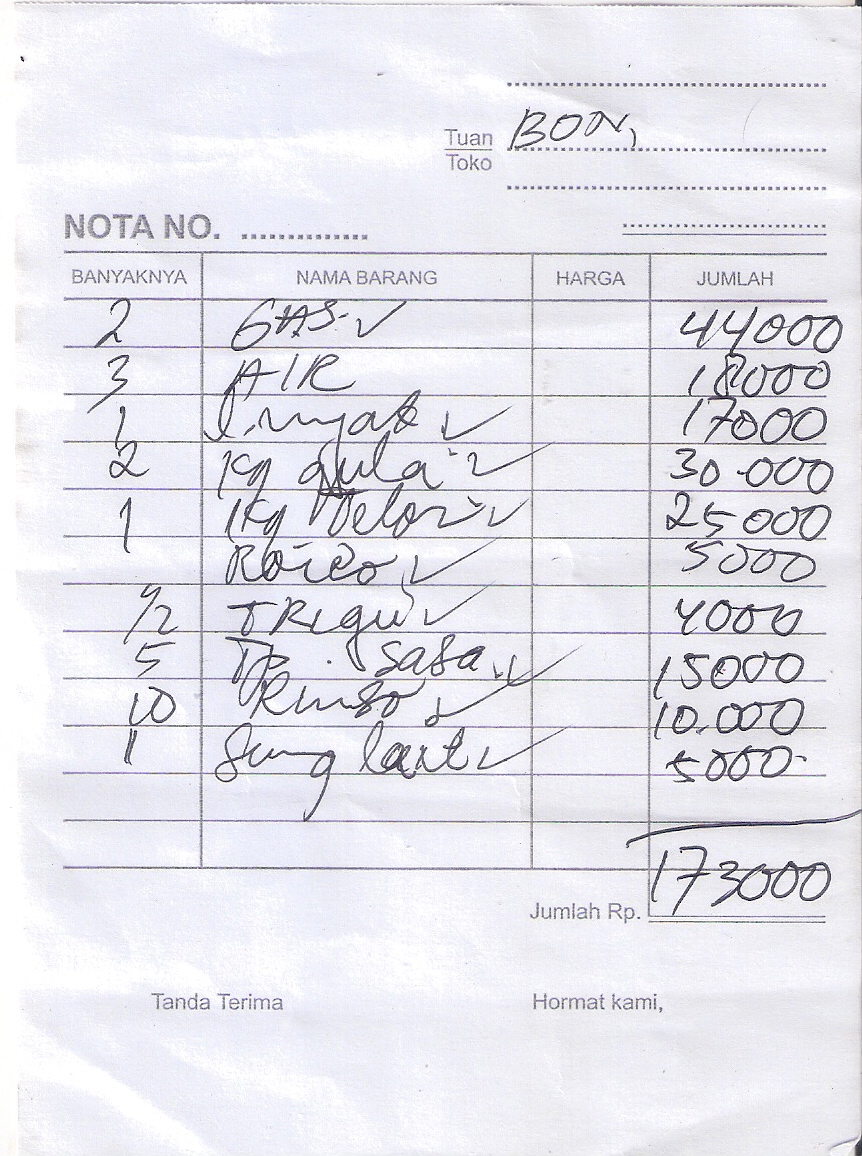 Tuan BON,
Toko
NOTA NO.
BANYAKNYA NAMA BARANG HARGA JUMLAH
2 GAS 44000
3 AIR 18000
1 l. nyak 17000
2 Kg gula 30.000
1 Kg Telor 25000
Roico 5000
1/2 TRigu 4000
5 Tp. Sasa 15000
10 Rinso 10.000
1 Sung lait 5000
173000
Jumlah Rp.
Tanda Terima Hormat kami,